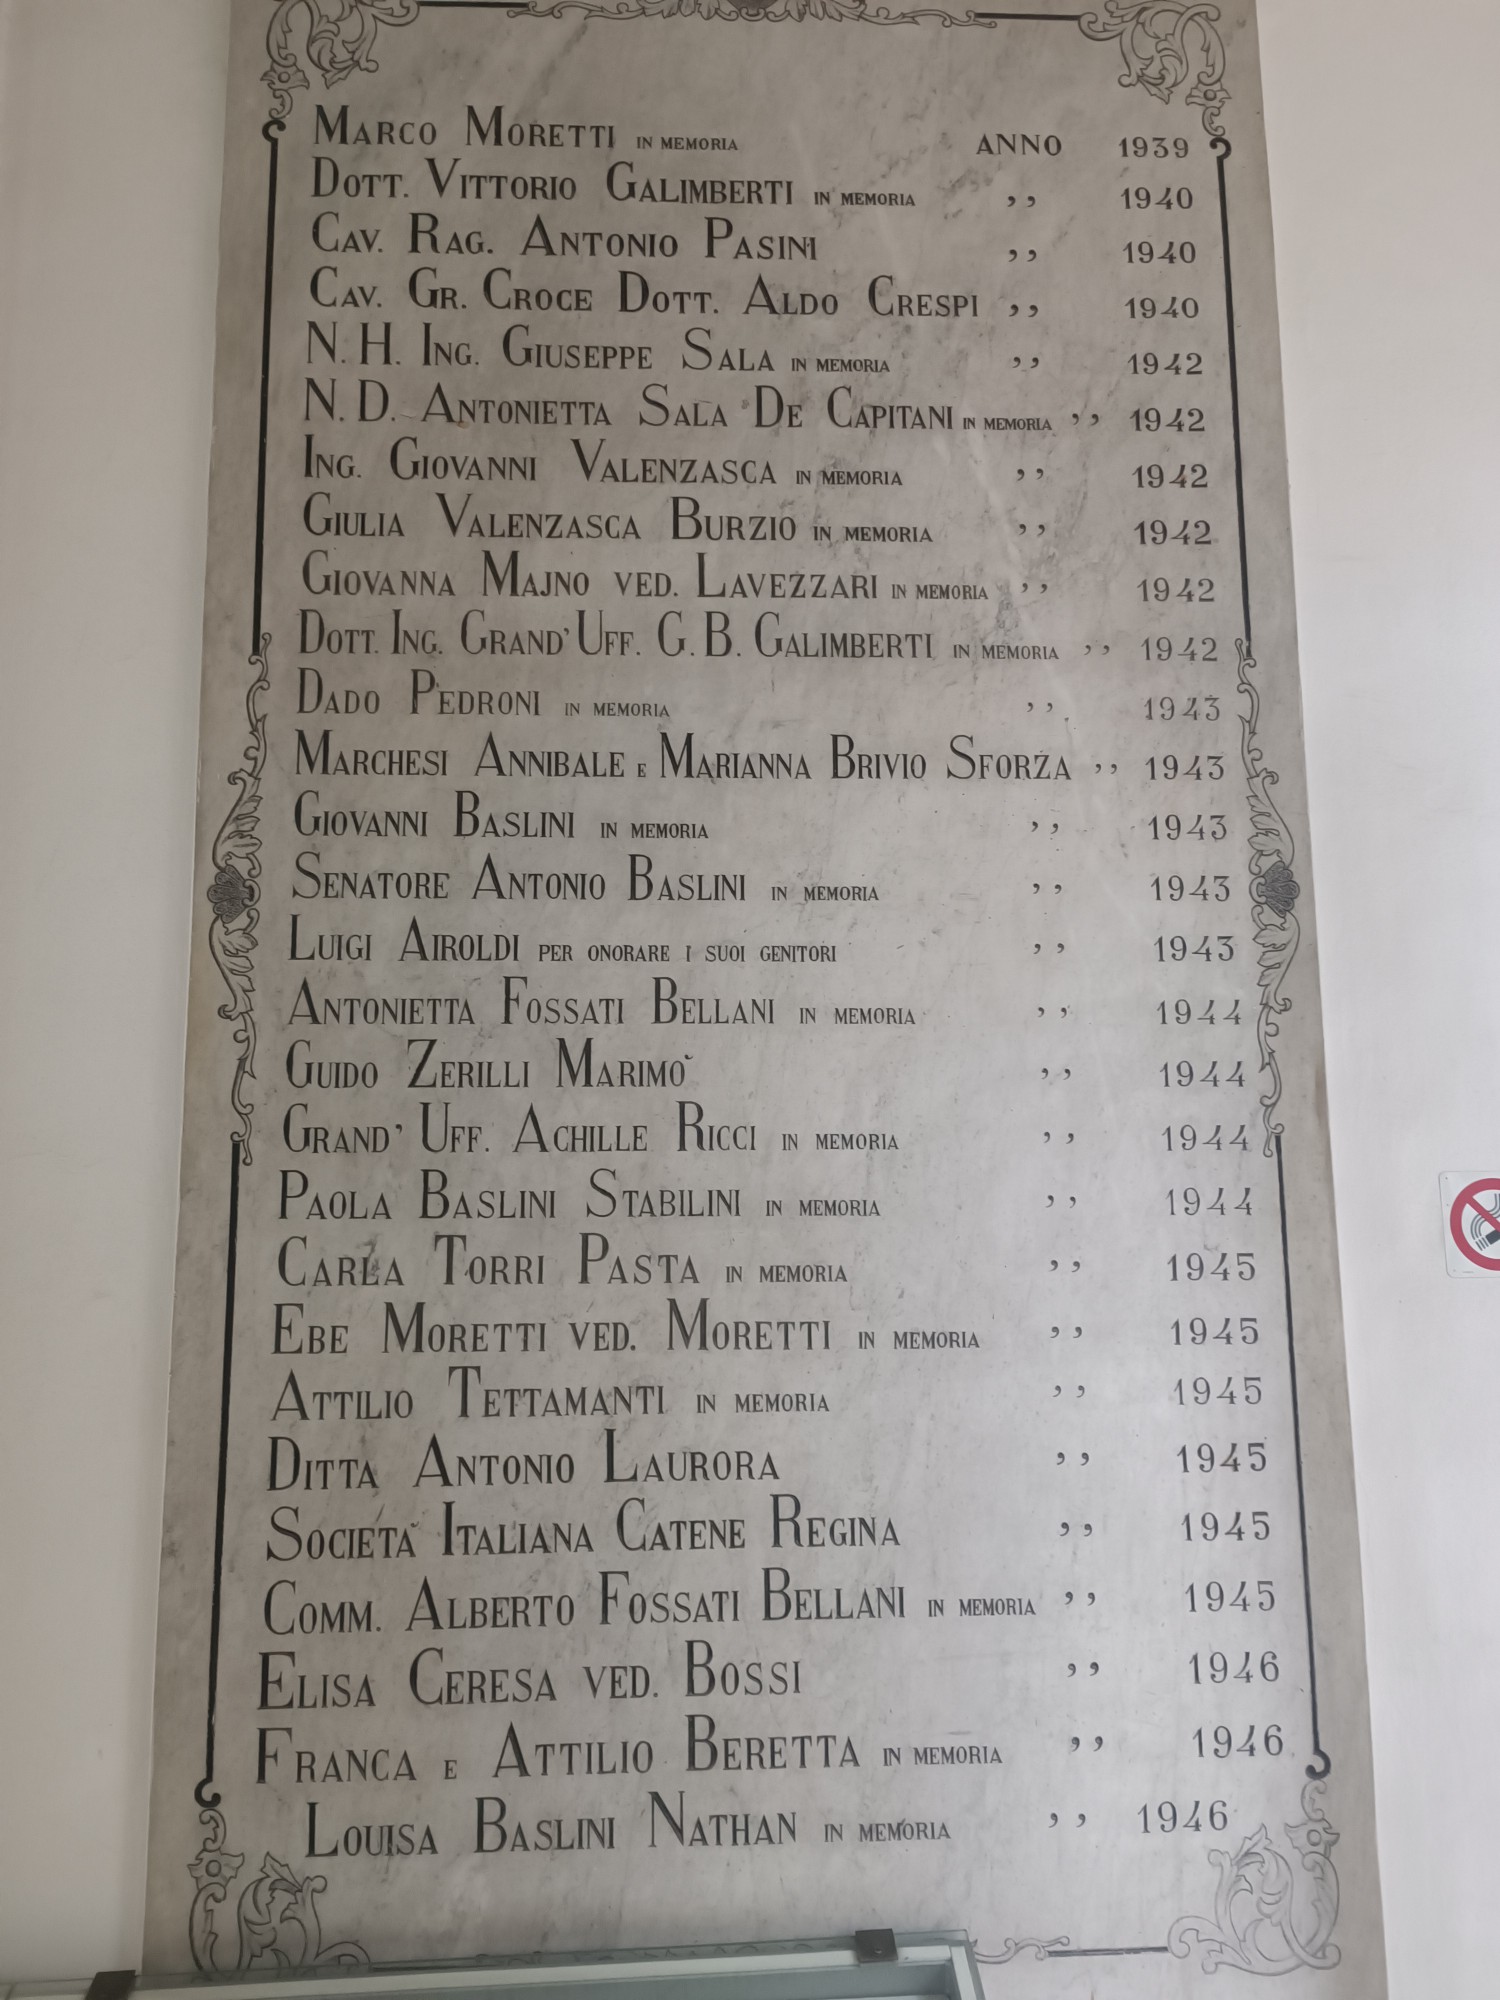 MARCO MORETTI IN MEMORIA ANNO 1939
DOTT. VITTORIO GALIMBERTI IN MEMORIA ,, 1940
CAV. RAG. ANTONIO PASINI ,, 1940
CAV. GR. CROCE DOTT. ALDO CRESPI ,, 1940
N. H. ING. GIUSEPPE SALA IN MEMORIA ,, 1942
N. D. ANTONIETTA SALA DE CAPITANI IN MEMORIA ,, 1942
ING. GIOVANNI VALENZASCA IN MEMORIA ,, 1942
GIULIA VALENZASCA BURZIO IN MEMORIA ,, 1942
GIOVANNA MAJNO VED. LAVEZZARI IN MEMORIA ,, 1942
DOTT. ING. GRAND' UFF. G. B. GALIMBERTI IN MEMORIA ,, 1942
DADO PEDRONI IN MEMORIA ,, 1943
MARCHESI ANNIBALE E MARIANNA BRIVIO SFORZA ,, 1943
GIOVANNI BASLINI IN MEMORIA ,, 1943
SENATORE ANTONIO BASLINI IN MEMORIA ,, 1943
LUIGI AIROLDI PER ONORARE I SUOI GENITORI ,, 1943
ANTONIETTA FOSSATI BELLANI IN MEMORIA ,, 1944
GUIDO ZERILLI MARIMÒ ,, 1944
GRAND' UFF. ACHILLE RICCI IN MEMORIA ,, 1944
PAOLA BASLINI STABILINI IN MEMORIA ,, 1944
CARLA TORRI PASTA IN MEMORIA ,, 1945
EBE MORETTI VED. MORETTI IN MEMORIA ,, 1945
ATTILIO TETTAMANTI IN MEMORIA ,, 1945
DITTA ANTONIO LAURORA ,, 1945
SOCIETÀ ITALIANA CATENE REGINA ,, 1945
COMM. ALBERTO FOSSATI BELLANI IN MEMORIA ,, 1945
ELISA CERESA VED. BOSSI ,, 1946
FRANCA E ATTILIO BERETTA IN MEMORIA ,, 1946
LOUISA BASLINI NATHAN IN MEMORIA ,, 1946